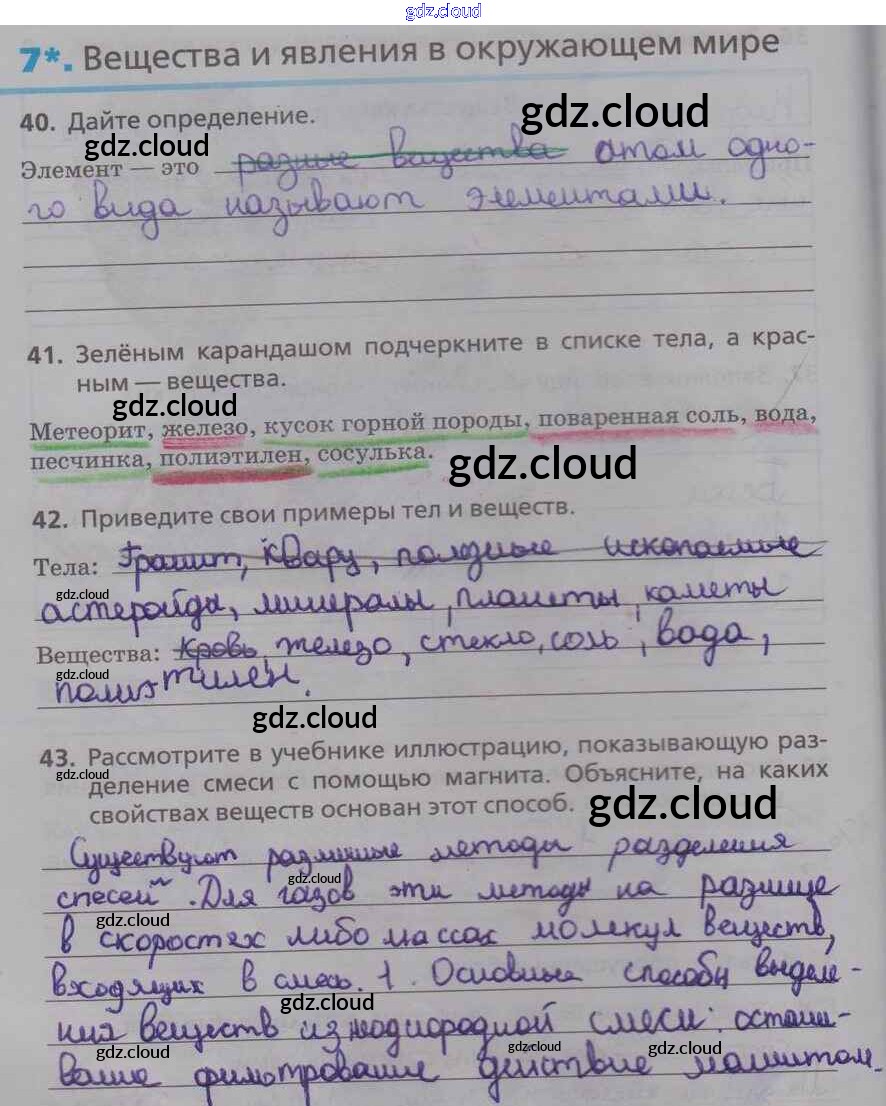 gdz.cloud
7*. Вещества и явления в окружающем мире
gdz.cloud
40. Дайте определение.
gdz.cloud
Элемент — это разные вещества атом одно-
го вида называют элементами.
41. Зелёным карандашом подчеркните в списке тела, а крас-
ным — вещества.
gdz.cloud
Метеорит, железо, кусок горной породы, поваренная соль, вода,
песчинка, полиэтилен, сосулька.
gdz.cloud
42. Приведите свои примеры тел и веществ.
Тела: Гранит, кварц, полезные ископаемые
gdz.cloud
астеройды, минералы, планеты, каметы
Вещества: кровь железо, стекло, соль, вода,
gdz.cloud
полиэтилен.
gdz.cloud
43. Рассмотрите в учебнике иллюстрацию, показывающую раз-
gdz.cloud
деление смеси с помощью магнита. Объясните, на каких
свойствах веществ основан этот способ.
gdz.cloud
Существуют различные методы разделения
gdz.cloud
спесей. Для газов эти методы на разнице
gdz.cloud
в скоростях либо массах молекул веществ,
входящих в смесь. 1. Основные способы выделе-
gdz.cloud
ния веществ из неоднородной смеси: отстаи-
gdz.cloud gdz.cloud gdz.cloud
вание фильтрование действие магнитом.